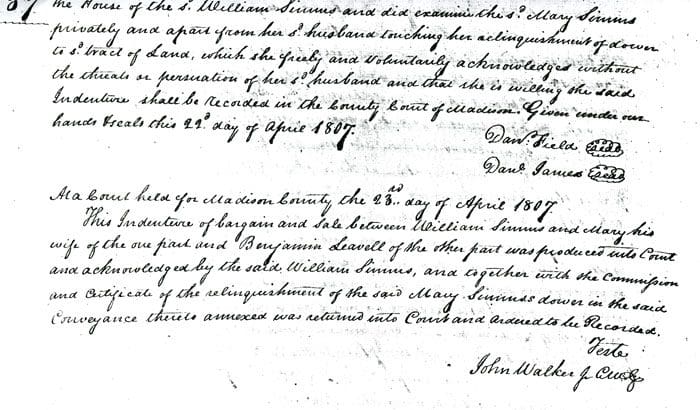 87
the House of the s.d William Simms and did examine the s.d Mary Simms
privately and apart from her s.d husband touching her relinquishment of dower
to s.d tract of Land, which she freely and voluntarily acknowledges without
the threats or persuation of her s.d husband and that she is willing the said
Indenture shall be recorded in the County Court of Madison. Given under our
hands & seals this 22.d day of April 1807.
Dan.l Field Seal
Dan.l James Seal
At a Court held for Madison County the 23.rd day of April 1807
This Indenture of bargain and sale between William Simms and Mary his
wife of the one part and Benjamin Leavell of the other part was produced into Court
and acknowledged by the said William Simms, and together with the Commission
and Certificate of the relinquishment of the said Mary Simms's dower in the said
Conveyance thereto annexed was returned into Court and ordered to be Recorded.
Teste
John Walker Jr